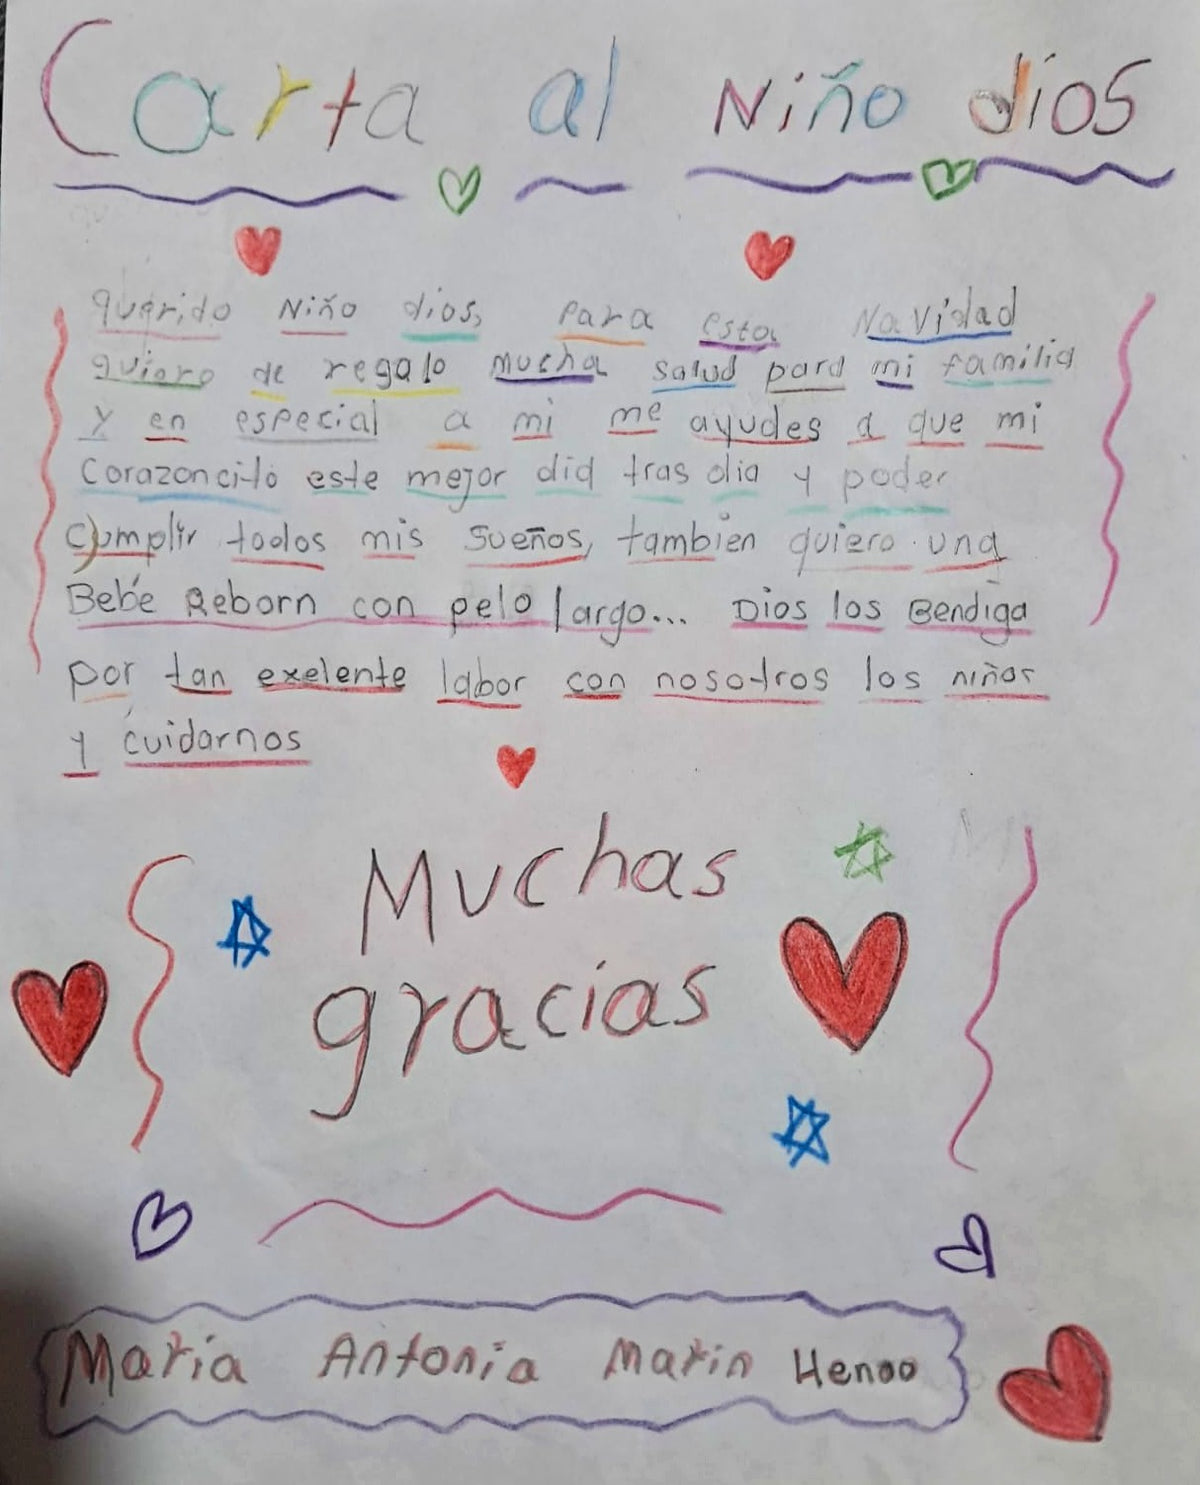 Carta al Niño dios
querido Niño dios, para esta Navidad
quiero de regalo mucha salud para mi familia
y en especial a mi me ayudes a que mi
corazoncito este mejor dia tras dia y poder
cumplir todos mis sueños, tambien quiero una
Bebé Reborn con pelo largo... Dios los Bendiga
por tan exelente labor con nosotros los niños
y cuidarnos
Muchas
gracias
Maria Antonia Marin Henao